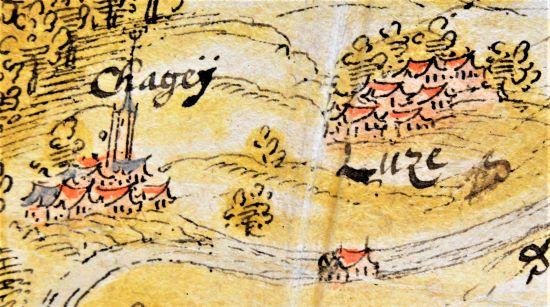 Chageÿ
Luze